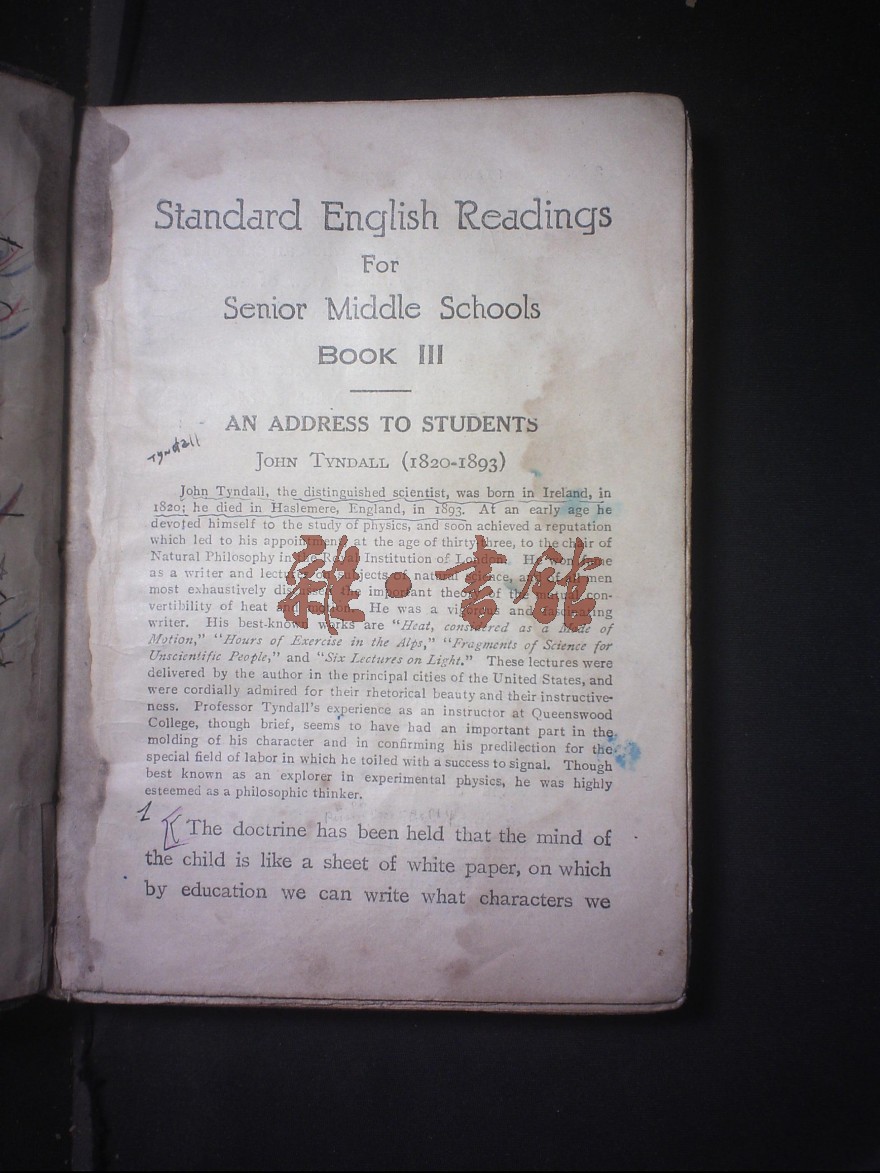 Standard English Readings
For
Senior Middle Schools
BOOK III
AN ADDRESS TO STUDENTS
Tyndall
JOHN TYNDALL (1820-1893)
John Tyndall, the distinguished scientist, was born in Ireland, in
1820; he died in Haslemere, England, in 1893. At an early age he
devoted himself to the study of physics, and soon achieved a reputation
which led to his appointment, at the age of thirty-three, to the chair of
Natural Philosophy in the Royal Institution of London. He won fame
as a writer and lecturer on subjects of natural science, and of all men
most exhaustively discussed the important theory of the mutual con-
vertibility of heat and motion. He was a vigorous and fascinating
writer. His best-known works are "Heat, considered as a Mode of
Motion," "Hours of Exercise in the Alps," "Fragments of Science for
Unscientific People," and "Six Lectures on Light." These lectures were
delivered by the author in the principal cities of the United States, and
were cordially admired for their rhetorical beauty and their instructive-
ness. Professor Tyndall's experience as an instructor at Queenswood
College, though brief, seems to have had an important part in the
molding of his character and in confirming his predilection for the
special field of labor in which he toiled with a success to signal. Though
best known as an explorer in experimental physics, he was highly
esteemed as a philosophic thinker.
雜·書館
1
The doctrine has been held that the mind of
the child is like a sheet of white paper, on which
by education we can write what characters we